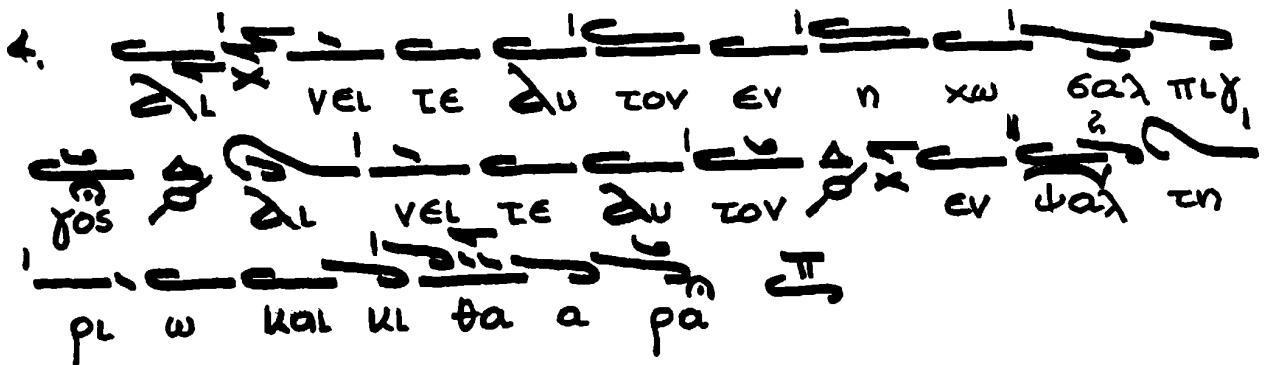 δ. αι νει τε αυ τον εν η χω σαλ πιγ
γος Δ αι νει τε αυ τον Δ εν ψαλ τη
ρι ω και κι θα α ρα Π